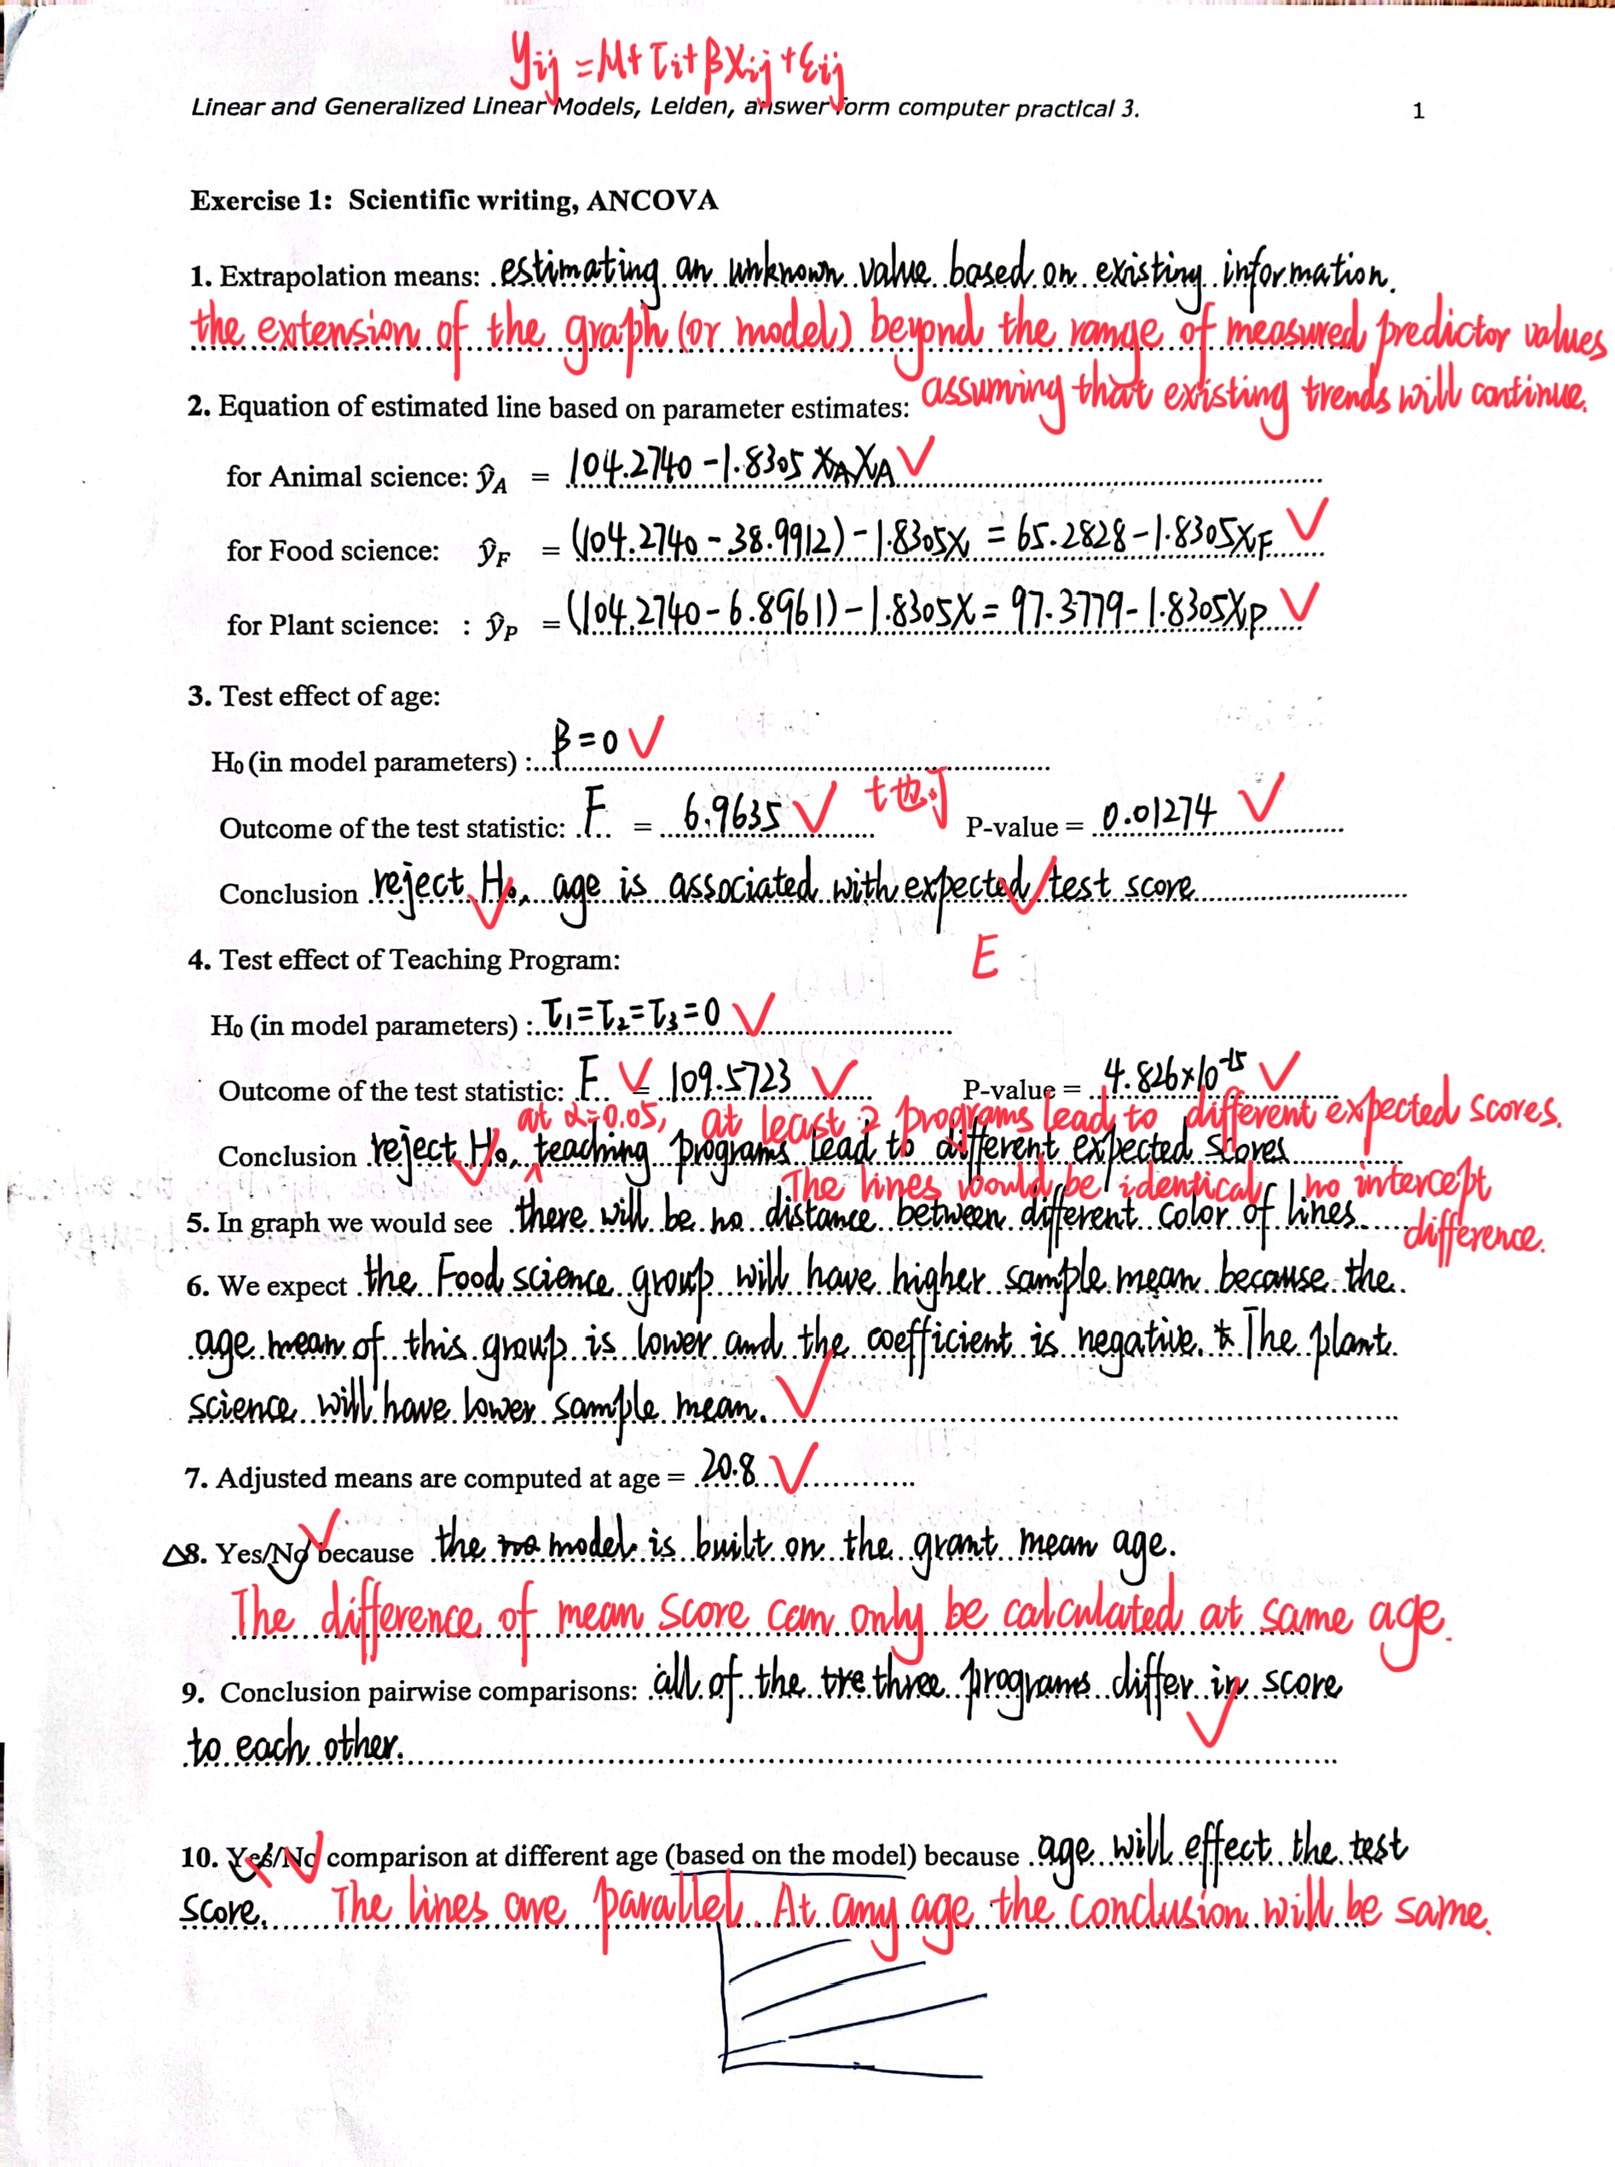 yij = μ + τi + βxij + εij
Linear and Generalized Linear Models, Leiden, answer form computer practical 3. 1
Exercise 1: Scientific writing, ANCOVA
1. Extrapolation means: estimating an unknown value based on existing information.
the extension of the graph (or model) beyond the range of measured predictor values
assuming that existing trends will continue.
2. Equation of estimated line based on parameter estimates:
for Animal science: ŷA = 104.2740 - 1.8305 XA ✓
for Food science: ŷF = (104.2740 - 38.9912) - 1.8305X = 65.2828 - 1.8305XF ✓
for Plant science: : ŷP = (104.2740 - 6.8961) - 1.8305X = 97.3779 - 1.8305XP ✓
3. Test effect of age:
H0 (in model parameters) : β = 0 ✓
Outcome of the test statistic: F = 6.9635 ✓ t也可 P-value = 0.01274 ✓
Conclusion reject H0, age is associated with expected test score
E
4. Test effect of Teaching Program:
H0 (in model parameters) : τ1 = τ2 = τ3 = 0 ✓
Outcome of the test statistic: F ✓ = 109.5723 ✓ P-value = 4.826×10^-15 ✓
at α=0.05, at least 2 programs lead to different expected scores.
Conclusion reject H0, teaching programs lead to different expected scores
The lines would be identical, no intercept
5. In graph we would see there will be no distance between different color of lines.
difference.
6. We expect the Food science group will have higher sample mean because the
age mean of this group is lower and the coefficient is negative. The plant
science will have lower sample mean. ✓
7. Adjusted means are computed at age = 20.8 ✓
Δ8. Yes/No because the model is built on the grant mean age.
The difference of mean score can only be calculated at same age.
9. Conclusion pairwise comparisons: all of the three programs differ in score
to each other.
10. Yes/No comparison at different age (based on the model) because age will effect the test
score. The lines are parallel. At any age the conclusion will be same.